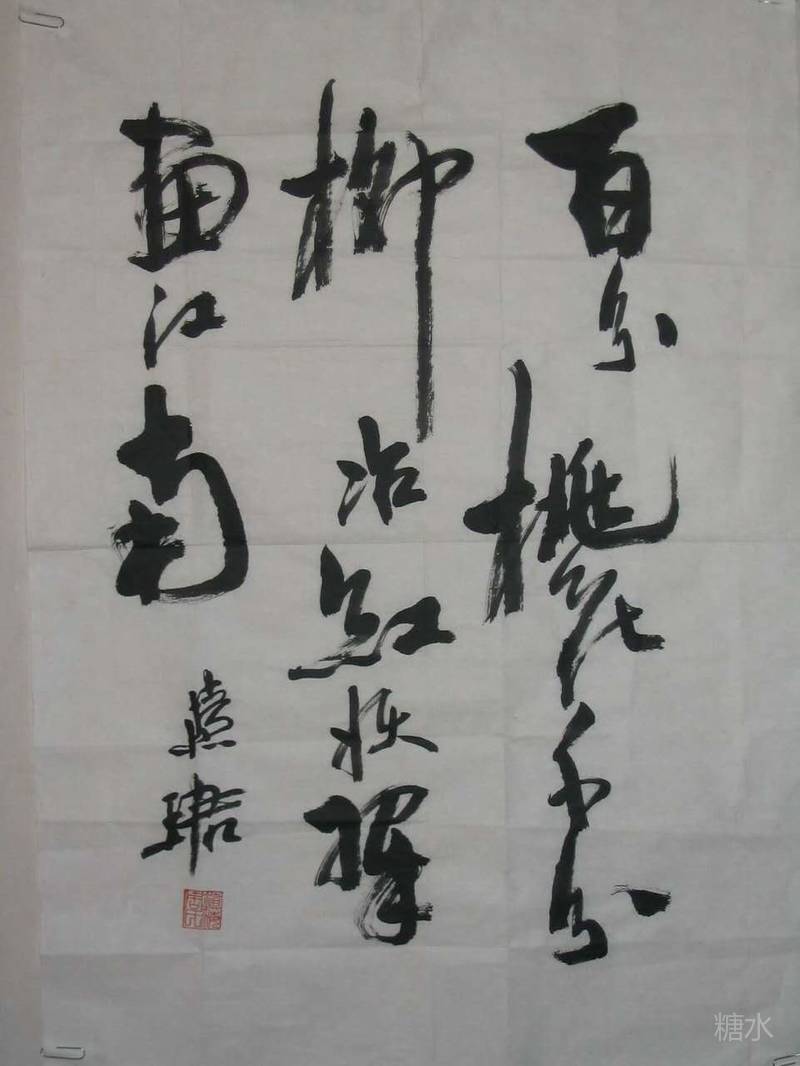 百分桃花千分
柳冶红妖翠
画江南
糖水